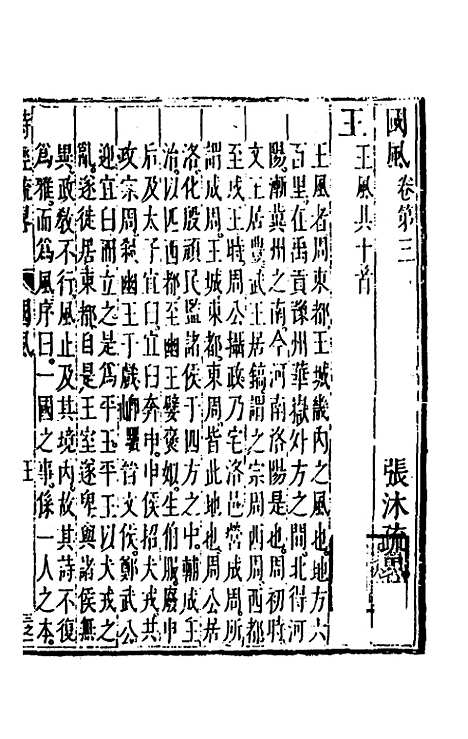 國風卷第三 張沐疏畧
王 王風共十首
王風者周東都王城畿內之風也地方六
百里在禹貢豫州華嶽外方之間北得河
陽漸冀州之南今河南洛陽是也周初時
文王居豐武王居鎬謂之宗周西周西都
至成王時周公攝政乃宅洛邑營成周所
謂成周王城東都東周皆此地也成周居
洛化殷頑民監諸侯于四方之中輔成王
治以匹西都至幽王嬖褒姒生伯服廢申
后及太子宜臼宜臼奔申申侯招犬戎共
攻宗周弒幽王于戲晉文侯鄭武公
迎宜臼而立之是為平王平王以犬戎之
亂遂徙居東都自是王室遂卑與諸侯無
異政教不行風止及其境內故其詩不復
為雅而為風序曰一國之事係一人之本
詩經疏畧 國風 王